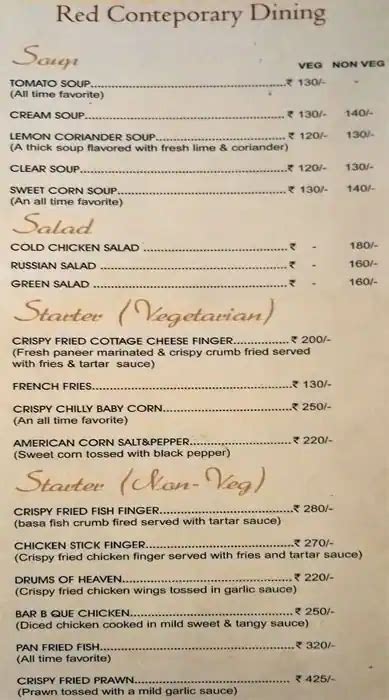 Red Conteporary Dining
Soup VEG NON VEG
TOMATO SOUP.......................................................₹ 130/- -
(All time favorite)
CREAM SOUP.......................................................₹ 130/- 140/-
LEMON CORIANDER SOUP....................................₹ 120/- 130/-
(A thick soup flavored with fresh lime & coriander)
CLEAR SOUP.......................................................₹ 120/- 130/-
SWEET CORN SOUP..............................................₹ 130/- 140/-
(An all time favorite)
Salad
COLD CHICKEN SALAD ........................................₹ - 180/-
RUSSIAN SALAD ...................................................₹ - 160/-
GREEN SALAD .....................................................₹ - 160/-
Starter (Vegetarian)
CRISPY FRIED COTTAGE CHEESE FINGER...............₹ 200/-
(Fresh paneer marinated & crispy crumb fried served
with fries & tartar sauce)
FRENCH FRIES.....................................................₹ 130/-
CRISPY CHILLY BABY CORN...................................₹ 250/-
(An all time favorite)
AMERICAN CORN SALT&PEPPER............................₹ 220/-
(Sweet corn tossed with black pepper)
Starter (Non-Veg)
CRISPY FRIED FISH FINGER...................................₹ 280/-
(basa fish crumb fired served with tartar sauce)
CHICKEN STICK FINGER........................................₹ 270/-
(Crispy fried chicken finger served with fries and tartar sauce)
DRUMS OF HEAVEN..............................................₹ 220/-
(Crispy fried chicken wings tossed in garlic sauce)
BAR B QUE CHICKEN.............................................₹ 250/-
(Diced chicken cooked in mild sweet & tangy sauce)
PAN FRIED FISH....................................................₹ 320/-
(All time favorite)
CRISPY FRIED PRAWN........................................... ₹ 425/-
(Prawn tossed with a mild garlic sauce)